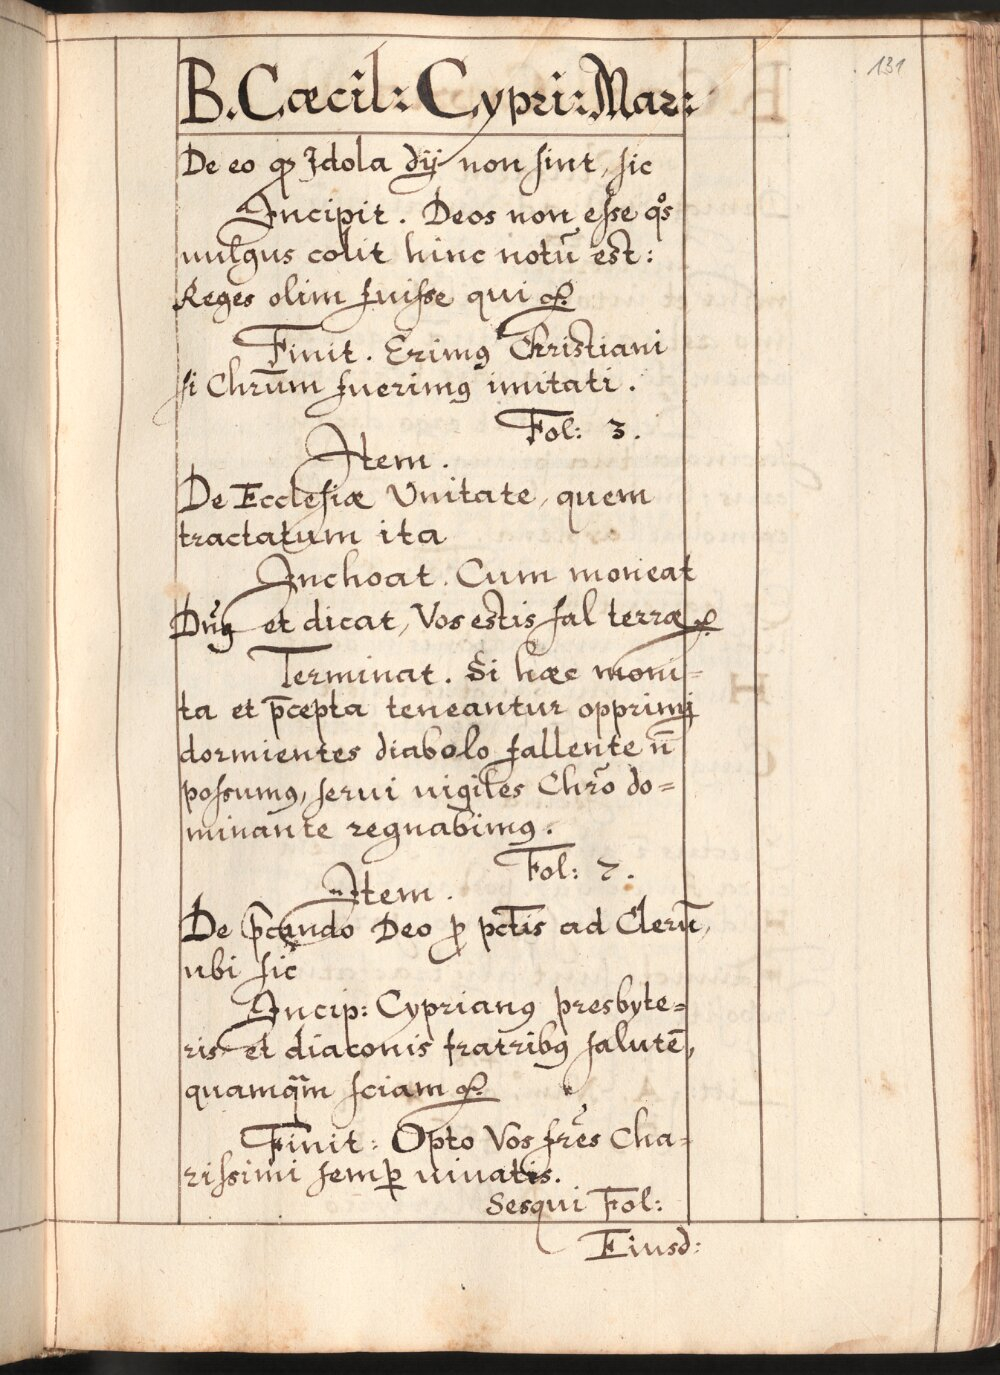 131
B. Cæcil: Cypri: Mar:
De eo qȝ Idola dij non sint, sic
Incipit. Deos non esse q°s
uulgus colit hinc notū est:
Reges olim fuisse qui &.
Finit. Erimꝰ Christiani
si Chrūm fuerimꝰ imitati.
Fol: 3.
Item.
De Ecclesiæ Vnitate, quem
tractatum ita
Inchoat. Cum moneat
Dn̄ꝰ et dicat, Vos estis sal terræ &.
Terminat. Si hæc moni-
ta et p̄cepta teneantur opprimi
dormientes diabolo fallente n̄
possumꝰ, serui uigiles Chr̄o do=
minante regnabimꝰ.
Fol: 7.
Item.
De p̄cando Deo ꝓ pct̄is ad Clerū,
ubi sic
Incip: Cyprianꝰ presbyte=
ris et diaconis fratribꝰ salutē,
quamq̄m sciam &.
Finit: Opto Vos fr̄es Cha-
rissimi semꝑ uiuatis.
Sesqui Fol:
Eiusd: